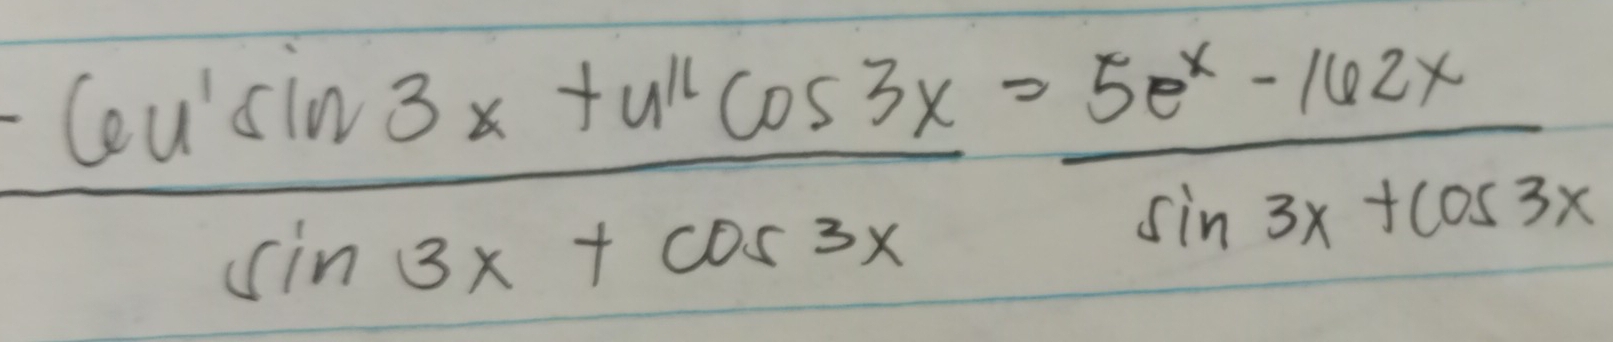 - 6u' sin 3x + u'' cos 3x = 5e^x - 162x
sin 3x + cos 3x sin 3x + cos 3x